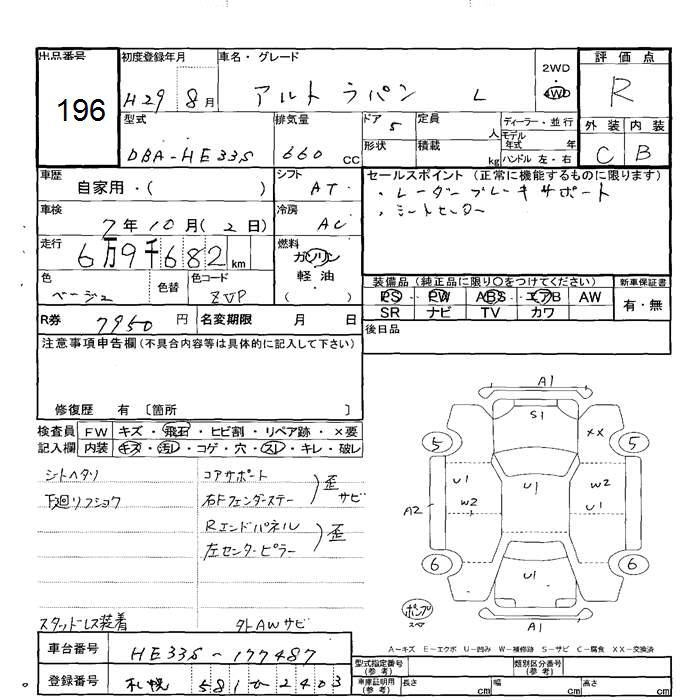 出品番号
196
初度登録年月
H29 8月
車名・グレード
アルト ラパン L
2WD
・
4WD
評価点
R
外装 内装
C B
型式
DBA-HE33S
排気量
660 cc
ドア 5
定員
人
形状
積載
kg
ディーラー・並行
モデル年式 年
ハンドル 左・右
車歴
自家用・( )
シフト
AT
車検
7年10月(2日)
冷房
AC
走行
6万9千682km
燃料
ガソリン
軽油
( )
色
ベージュ
色替
色コード
ZVP
R券
7950円
名変期限 月 日
セールスポイント (正常に機能するものに限ります)
・レーダーブレーキサポート
・シートヒーター
装備品(純正品に限り〇をつけてください)
PS・PW・ABS・エアB AW
SR ナビ TV カワ
新車保証書
有・無
後日品
注意事項申告欄(不具合内容等は具体的に記入して下さい)
修復歴 有 〔箇所 〕
検査員記入欄
FW キズ・飛石・ヒビ割・リペア跡・×要
内装 キズ・汚レ・コゲ・穴・スレ・キレ・破レ
シートヘタリ
下廻リフショク
コアサポート
右Fフェンダーステー
歪
サビ
Rエンドパネル
左センターピラー
歪
スタッドレス装着
外AWサビ
A1
S1
XX
5
5
U1
W2
U1
W2
U1
A2
6
6
U1
A1
ポンプ
スペア
A-キズ E-エクボ U-凹み W-補修跡 S-サビ C-腐食 XX-交換済
車台番号
HE33S-177487
登録番号
札幌 581 ひ 2403
型式指定番号
(参考)
類別区分番号
(参考)
車庫証明用
(参考)
長さ cm
幅 cm
高さ cm